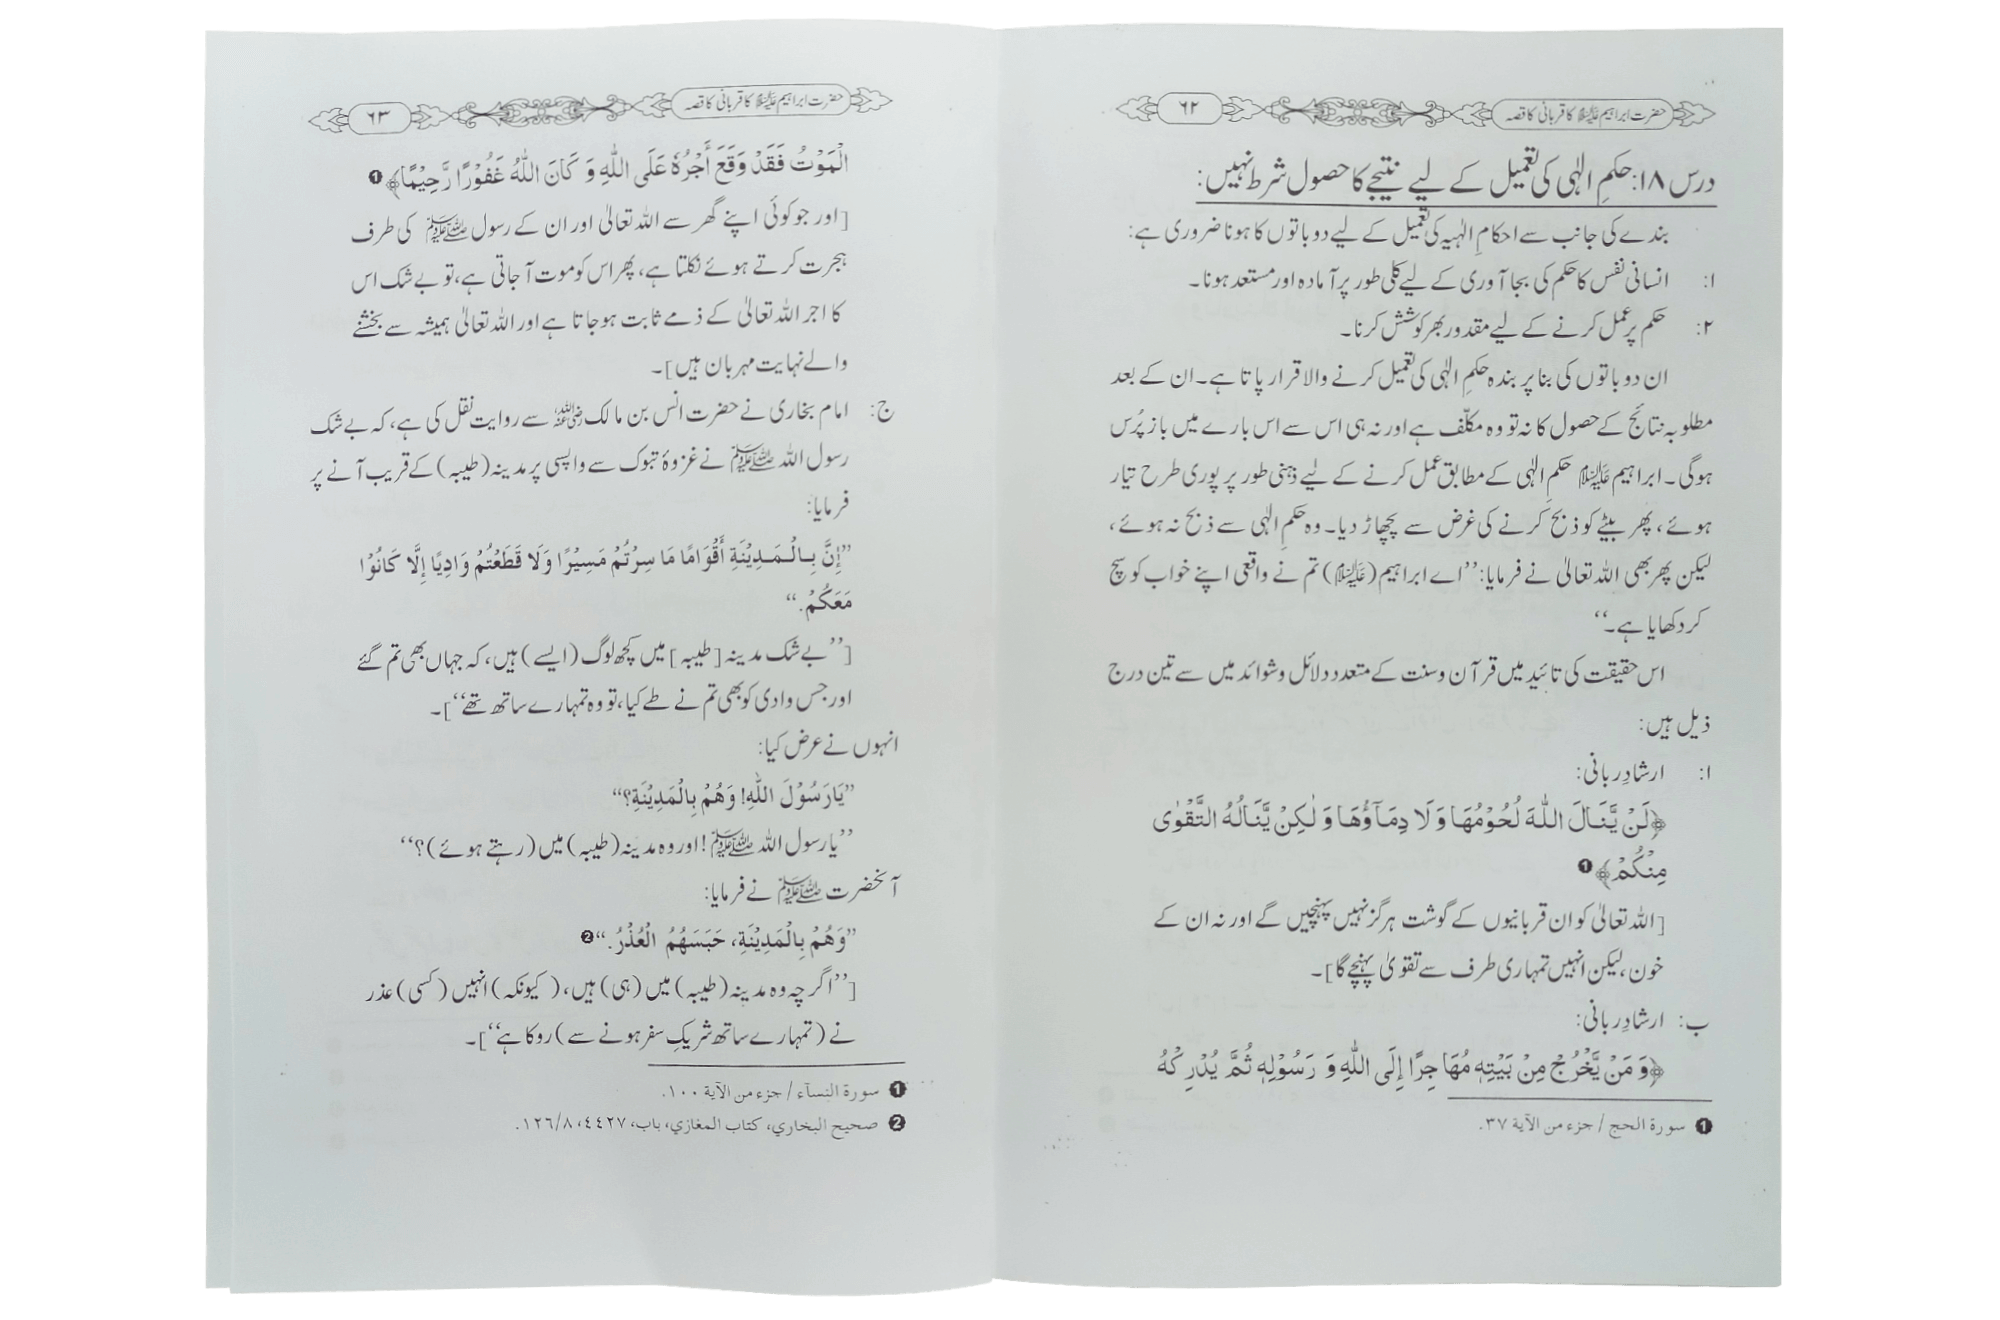 حضرت ابراہیم علیہ السلام کا قربانی کا قصہ
۶۲
درس ۱۸: حکمِ الٰہی کی تعمیل کے لیے نتیجے کا حصول شرط نہیں:
بندے کی جانب سے احکامِ الٰہیہ کی تعمیل کے لیے دو باتوں کا ہونا ضروری ہے:
۱: انسانی نفس کا حکم کی بجا آوری کے لیے کلی طور پر آمادہ اور مستعد ہونا۔
۲: حکم پر عمل کرنے کے لیے مقدور بھر کوشش کرنا۔
ان دو باتوں کی بنا پر بندہ حکمِ الٰہی کی تعمیل کرنے والا قرار پاتا ہے۔ ان کے بعد
مطلوبہ نتائج کے حصول کا نہ تو وہ مکلّف ہے اور نہ ہی اس سے اس بارے میں باز پُرس
ہوگی۔ ابراہیم علیہ السلام حکمِ الٰہی کے مطابق عمل کرنے کے لیے ذہنی طور پر پوری طرح تیار
ہوئے، پھر بیٹے کو ذبح کرنے کی غرض سے پچھاڑ دیا۔ وہ حکمِ الٰہی سے ذبح نہ ہوئے،
لیکن پھر بھی اللہ تعالیٰ نے فرمایا: ’’اے ابراہیم (علیہ السلام) تم نے واقعی اپنے خواب کو سچ
کر دکھایا ہے۔‘‘
اس حقیقت کی تائید میں قرآن و سنت کے متعدد دلائل و شوائد میں سے تین درج
ذیل ہیں:
ا: ارشادِ ربانی:
﴿لَنْ يَّنَالَ اللّٰهَ لُحُوْمُهَا وَلَا دِمَآؤُهَا وَلٰكِنْ يَّنَالُهُ التَّقْوٰى
مِنْكُمْ﴾ ❶
[اللہ تعالیٰ کو ان قربانیوں کے گوشت ہرگز نہیں پہنچیں گے اور نہ ان کے
خون، لیکن انہیں تمہاری طرف سے تقویٰ پہنچے گا]۔
ب: ارشادِ ربانی:
﴿وَمَنْ يَّخْرُجْ مِنْ بَيْتِهٖ مُهَاجِرًا إِلَى اللّٰهِ وَ رَسُوْلِهٖ ثُمَّ يُدْرِكْهُ
❶ سورة الحج / جزء من الآية ۳۷.
حضرت ابراہیم علیہ السلام کا قربانی کا قصہ
۶۳
الْمَوْتُ فَقَدْ وَقَعَ أَجْرُهٗ عَلَى اللّٰهِ وَ كَانَ اللّٰهُ غَفُوْرًا رَّحِيْمًا﴾ ❶
[اور جو کوئی اپنے گھر سے اللہ تعالیٰ اور ان کے رسول ﷺ کی طرف
ہجرت کرتے ہوئے نکلتا ہے، پھر اس کو موت آ جاتی ہے، تو بے شک اس
کا اجر اللہ تعالیٰ کے ذمے ثابت ہو جاتا ہے اور اللہ تعالیٰ ہمیشہ سے بخشنے
والے نہایت مہربان ہیں]۔
ج: امام بخاری نے حضرت انس بن مالک رضی اللہ عنہ سے روایت نقل کی ہے، کہ بے شک
رسول اللہ ﷺ نے غزوۂ تبوک سے واپسی پر مدینہ (طیبہ) کے قریب آنے پر
فرمایا:
’’إِنَّ بِالْمَدِيْنَةِ أَقْوَامًا مَا سِرْتُمْ مَسِيْرًا وَلَا قَطَعْتُمْ وَادِيًا إِلَّا كَانُوْا
مَعَكُمْ.‘‘
[’’بے شک مدینہ [طیبہ] میں کچھ لوگ (ایسے) ہیں، کہ جہاں بھی تم گئے
اور جس وادی کو بھی تم نے طے کیا، تو وہ تمہارے ساتھ تھے‘‘]۔
انہوں نے عرض کیا:
’’يَارَسُوْلَ اللّٰهِ! وَهُمْ بِالْمَدِيْنَةِ؟‘‘
’’یا رسول اللہ ﷺ! اور وہ مدینہ (طیبہ) میں (رہتے ہوئے)؟‘‘
آنحضرت ﷺ نے فرمایا:
’’وَهُمْ بِالْمَدِيْنَةِ، حَبَسَهُمُ الْعُذْرُ.‘‘ ❷
[’’اگرچہ وہ مدینہ (طیبہ) میں (ہی) ہیں، (کیونکہ) انہیں (کسی) عذر
نے (تمہارے ساتھ شریکِ سفر ہونے سے) روکا ہے‘‘]۔
❶ سورة النسآء / جزء من الآية ۱۰۰.
❷ صحيح البخاري، كتاب المغازي، باب، ٤٤٢٧، ١٢٦/٨.